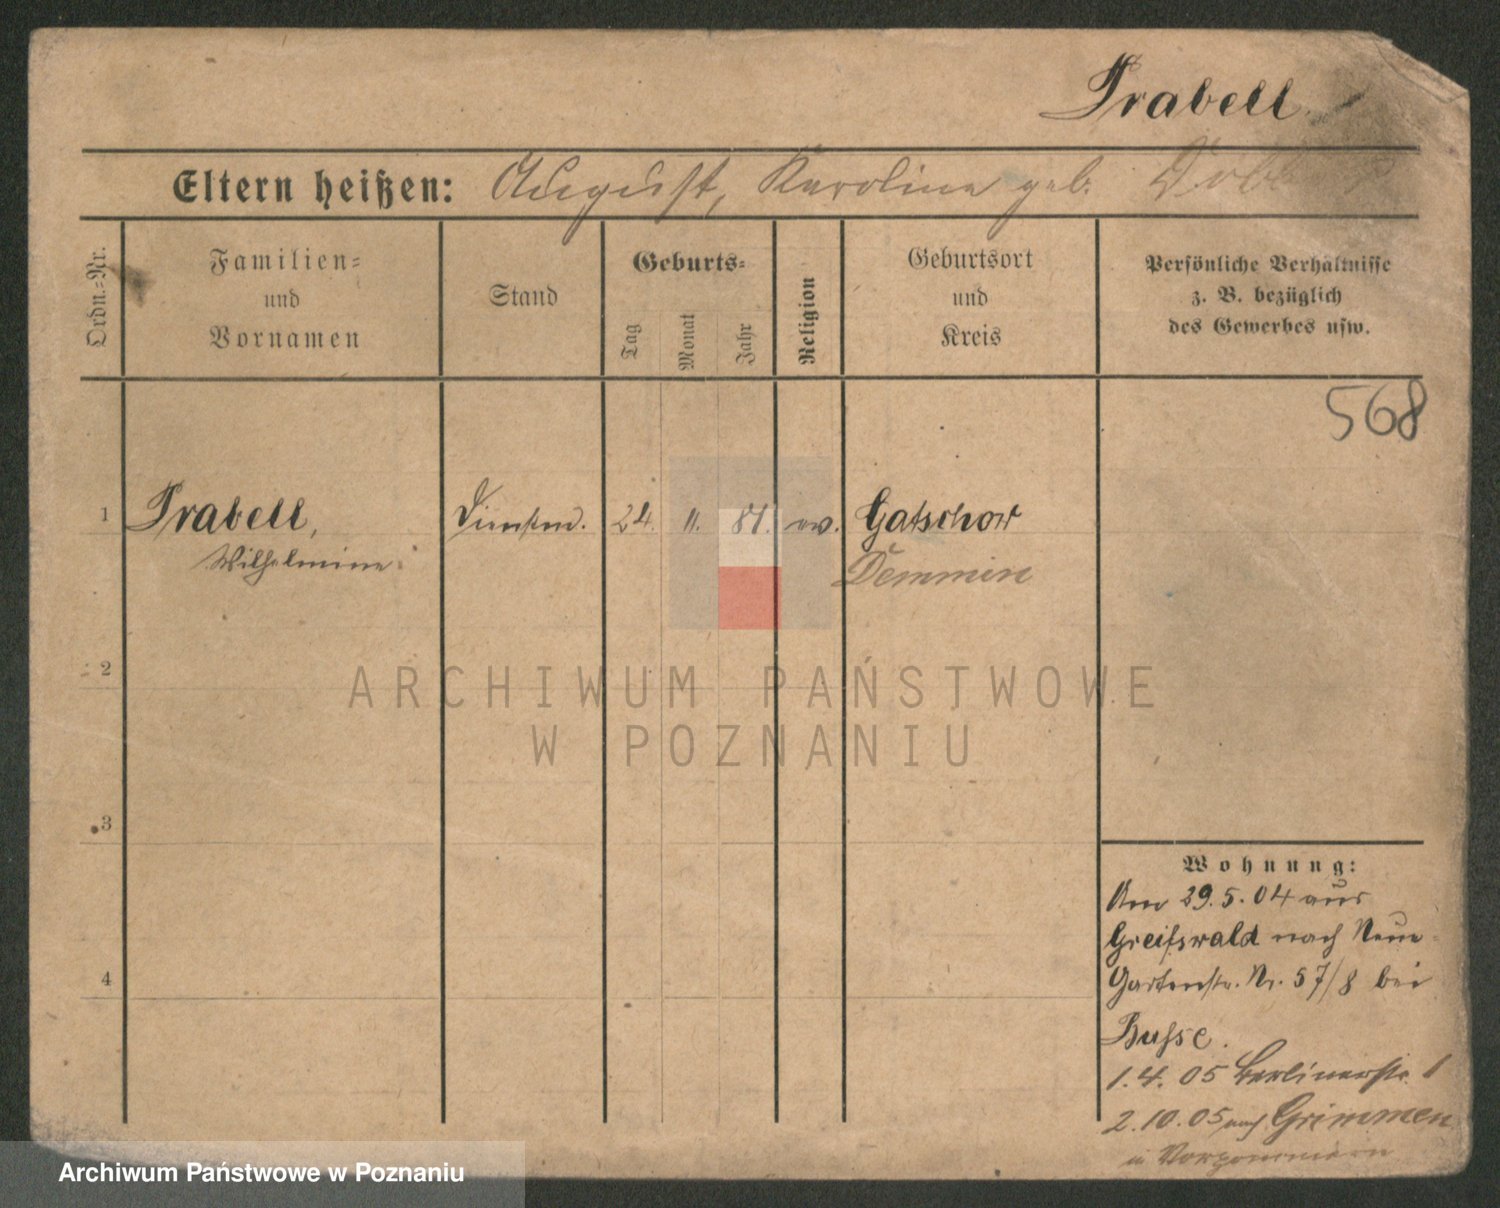 Prabell.
Eltern heißen: August, Karoline geb.
Ordn.=Nr.
Familien=
und
Vornamen
Stand
Geburts=
Tag
Monat
Jahr
Religion
Geburtsort
und
Kreis
Persönliche Verhältnisse
z. B. bezüglich
des Gewerbes usw.
568
1 Prabell, Dienstm. 24. 11. 81. ev. Gatschow
Wilhelmine Demmin
2
3
4
Wohnung:
Am 29.5.04 aus
Greifswald nach Neue
Gartenstr. Nr. 57/8 bei
Busse.
1.4.05 Berlinerstr. 1
2.10.05 nach Grimmen
in Vorpommern
ARCHIWUM PAŃSTWOWE
W POZNANIU
Archiwum Państwowe w Poznaniu